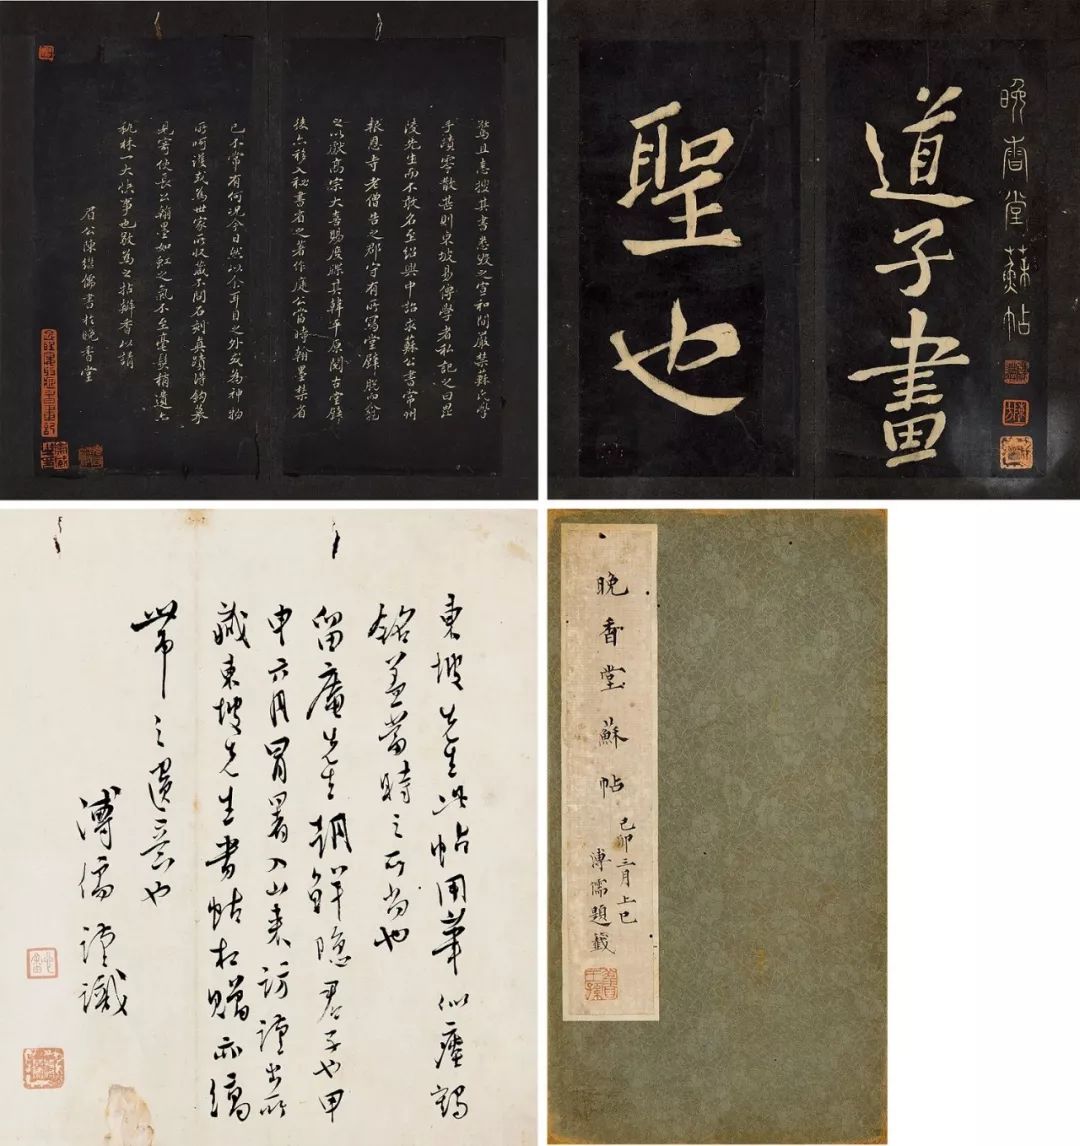 晚香堂蘇帖
道子畫
聖也
且志搜其書悉毀之宣和間嚴禁蘇氏學
手蹟零散甚則東坡易傳學者私記之曰毘
陵先生而不敢名至紹興中詔求蘇公書常州
報恩寺老僧告之郡守有所寫堂壁脫而龕
之以獻高宗大喜賜度牒其韓平原閱古堂壁
後亦移入秘書省之著作庭公當時翰墨禁省
已不常有何況今日然以余耳目之外或為神物
所呵護或為世家所收藏不聞石刻真蹟時鉤摹
見寄使長公翰墨如虹之氣不至毫髮稍遺亦
秇林一大快事也敬為之拈瓣香以請
眉公陳繼儒書於晚香堂
東坡先生此帖用筆似瘞鶴
銘蓋當時之所尚也
留庵先生朝鮮隱君子也甲
申六月冒暑入山來訪謹出所
藏東坡先生書帖相贈亦縞
帶之遺意也
溥儒謹識
晚香堂蘇帖
己卯三月上巳
溥儒題籤